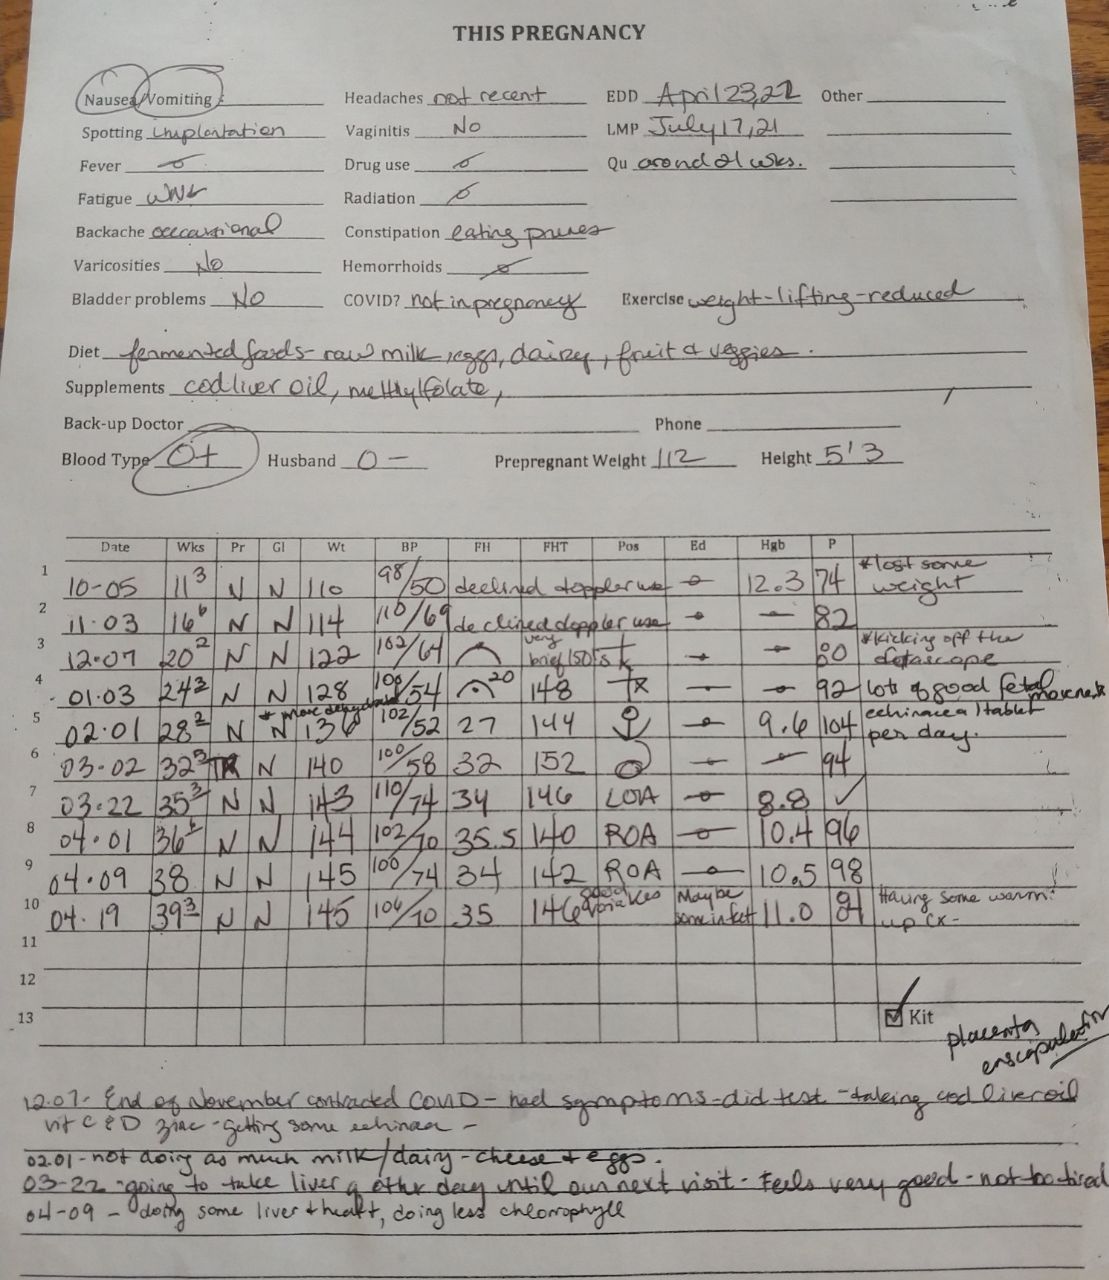 THIS PREGNANCY
Nausea/Vomiting Headaches not recent EDD April 23, 22 Other
Spotting implantation Vaginitis No LMP July 17, 21
Fever Drug use Qu around 21 wks.
Fatigue WNL Radiation
Backache occassional Constipation eating prunes
Varicosities No Hemorrhoids
Bladder problems No COVID? not in pregnancy Exercise weight-lifting-reduced
Diet fermented foods - raw milk, eggs, dairy, fruit & veggies.
Supplements cod liver oil, methylfolate,
Back-up Doctor Phone
Blood Type O+ Husband O- Prepregnant Weight 112 Height 5'3
Date Wks Pr Gl Wt BP FH FHT Pos Ed Hgb P
1 10-05 11 3 N N 110 98/50 declined doppler use 12.3 74 *lost some weight
2 11-03 16 6 N N 114 110/69 declined doppler use 82
3 12-07 20 2 N N 122 102/64 very brief 150's 80 *kicking off the fetascope
4 01-03 24 2 N N 128 100/54 20 148 92 lots of good fetal movement
5 02-01 28 2 N N 136 102/52 27 144 9.6 104 echinacea 1 tablet per day.
* more dehydrated
6 03-02 32 3 TR N 140 100/58 32 152 94
7 03-22 35 3 N N 143 110/74 34 146 LOA 8.8 ✓
8 04-01 36 6 N N 144 102/70 35.5 140 ROA 10.4 96
9 04-09 38 N N 145 100/74 34 142 ROA 10.5 98
10 04-19 39 3 N N 145 104/70 35 146 good Maybe some in feet 11.0 Having some warm up cx-
11
12
13 Kit
placenta
encapsulation
12.07- End of November contracted COVID - had symptoms - did test - taking cod liver oil
vit C & D zinc - getting some echinacea -
02.01 - not doing as much milk/dairy - cheese & eggs.
03-22 - going to take liver q other day until our next visit - Feels very good - not too tired
04-09 - doing some liver & heart, doing less chlorophyll